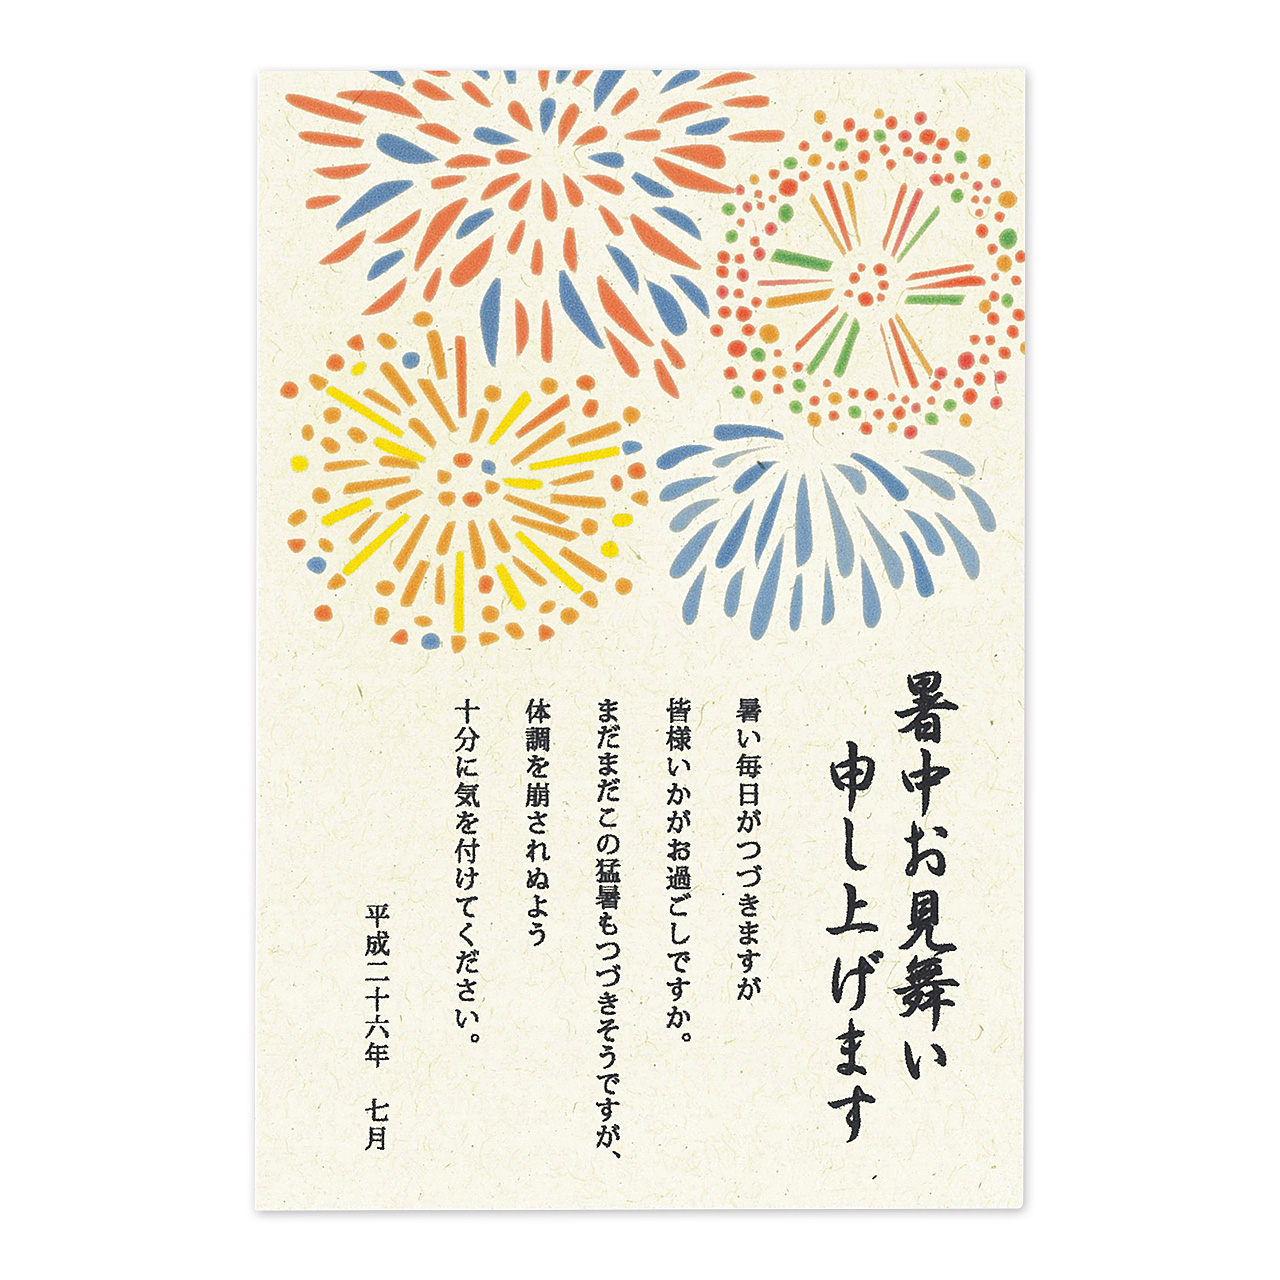 暑中お見舞い
申し上げます
暑い毎日がつづきますが
皆様いかがお過ごしですか。
まだまだこの猛暑もつづきそうですが、
体調を崩されぬよう
十分に気を付けてください。
平成二十六年　七月